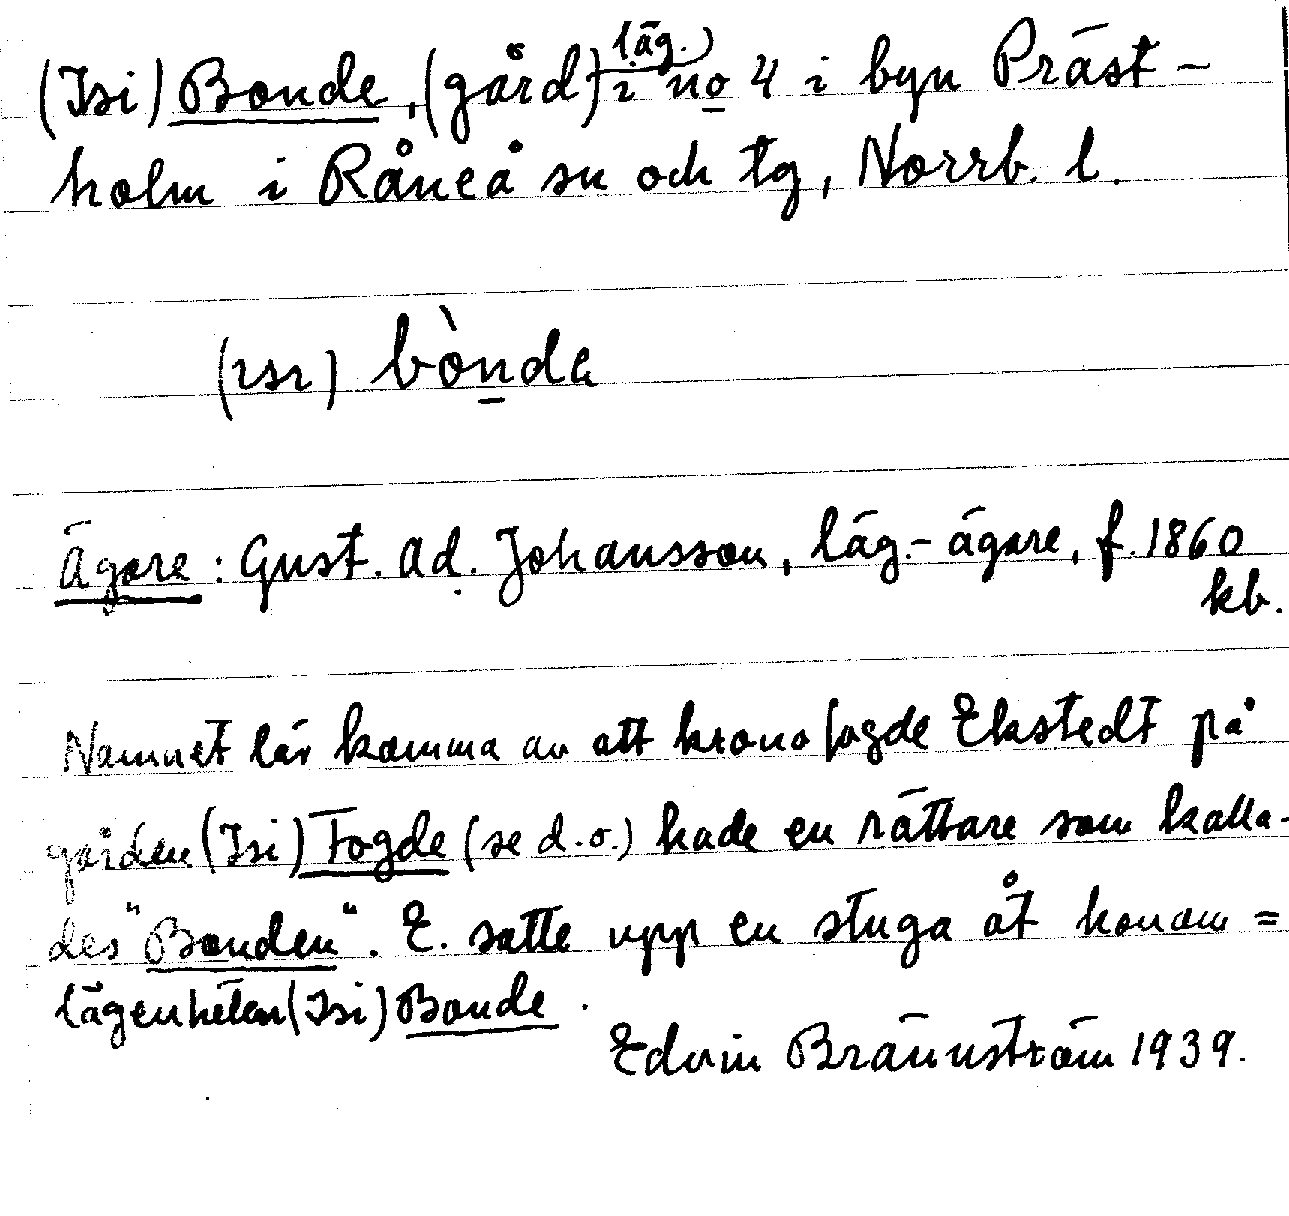 (Isi) Bonde, (gård) läg.) i no 4 i byn Präst-
holm i Råneå sn och tg, Norrb. l.
(ɪsɪ) bònda
Ägare: Gust. Ad. Johansson, läg.-ägare, f. 1860
kb.
Namnet lär komma av att kronofogde Ekstedt på
gården (Isi) Fogde (se d.o.) hade en rättare som kalla-
des "Bonden". E. satte upp en stuga åt honom =
lägenheten (Isi) Bonde.
Edvin Brännström 1939.